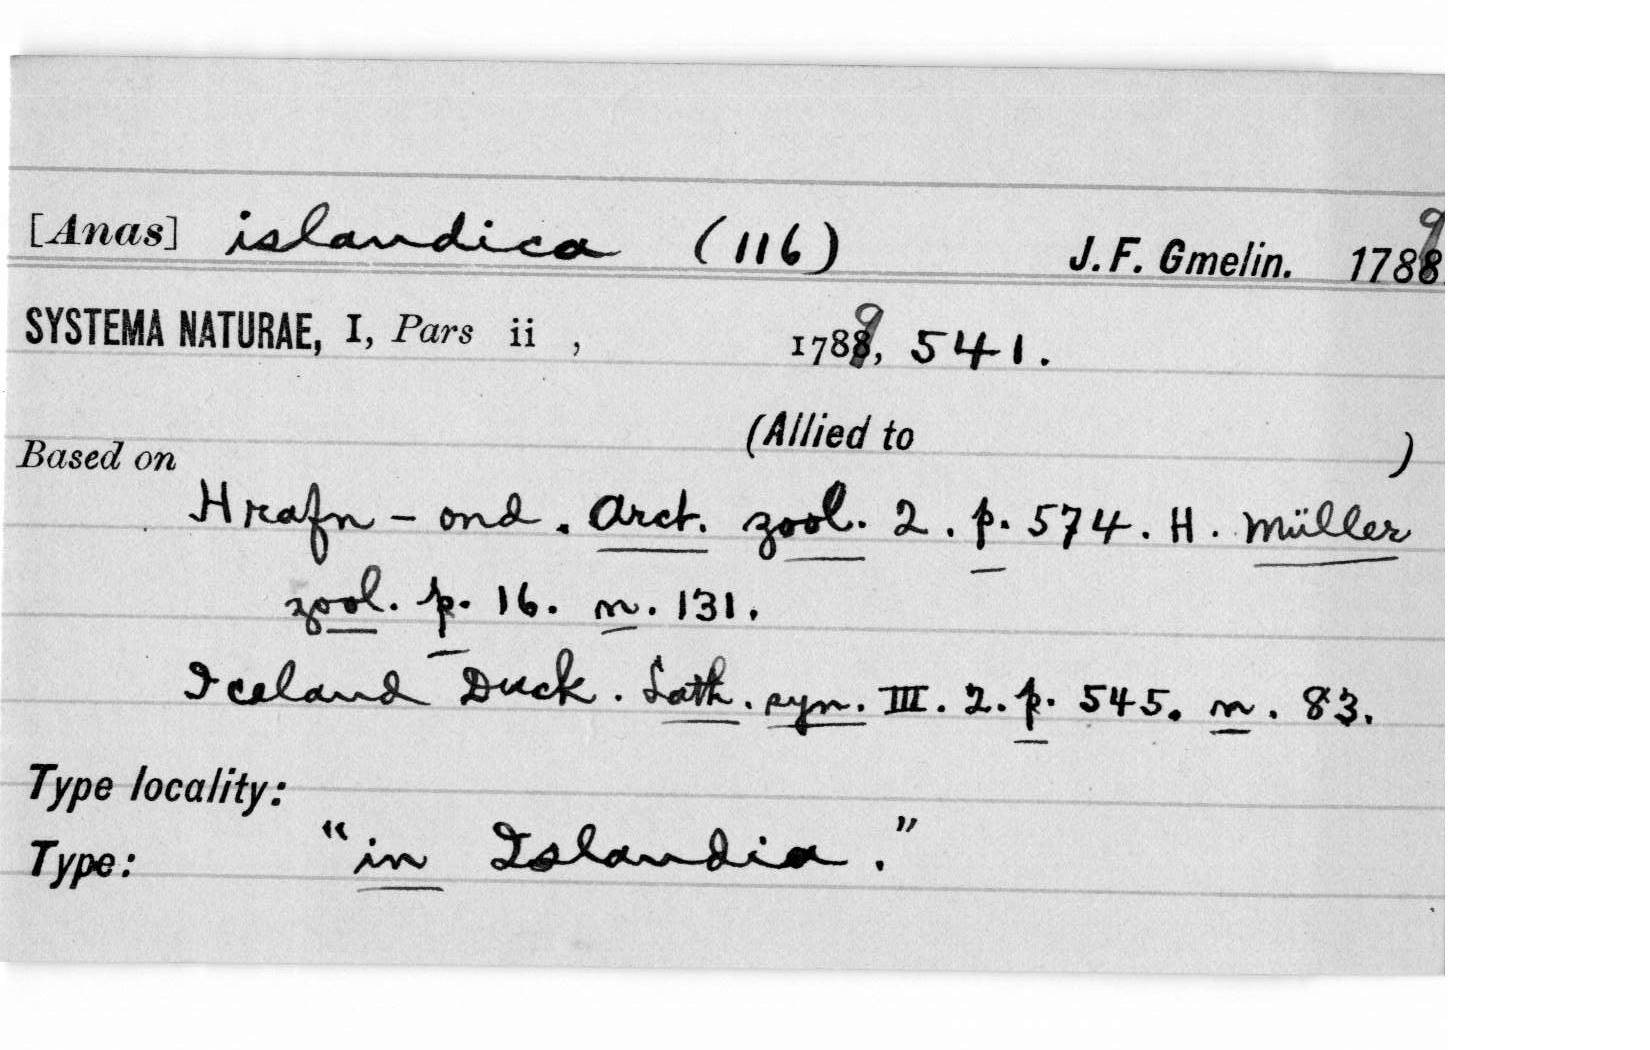 [Anas] islandica (116) J. F. Gmelin. 1789
SYSTEMA NATURAE, I, Pars ii , 1789, 541.
(Allied to )
Based on
Hrafn - ond. Arct. zool. 2. p. 574. H. Müller
zool. p. 16. n. 131.
Iceland Duck. Lath. syn. III. 2. p. 545. n. 83.
Type locality:
"in Islandia."
Type: